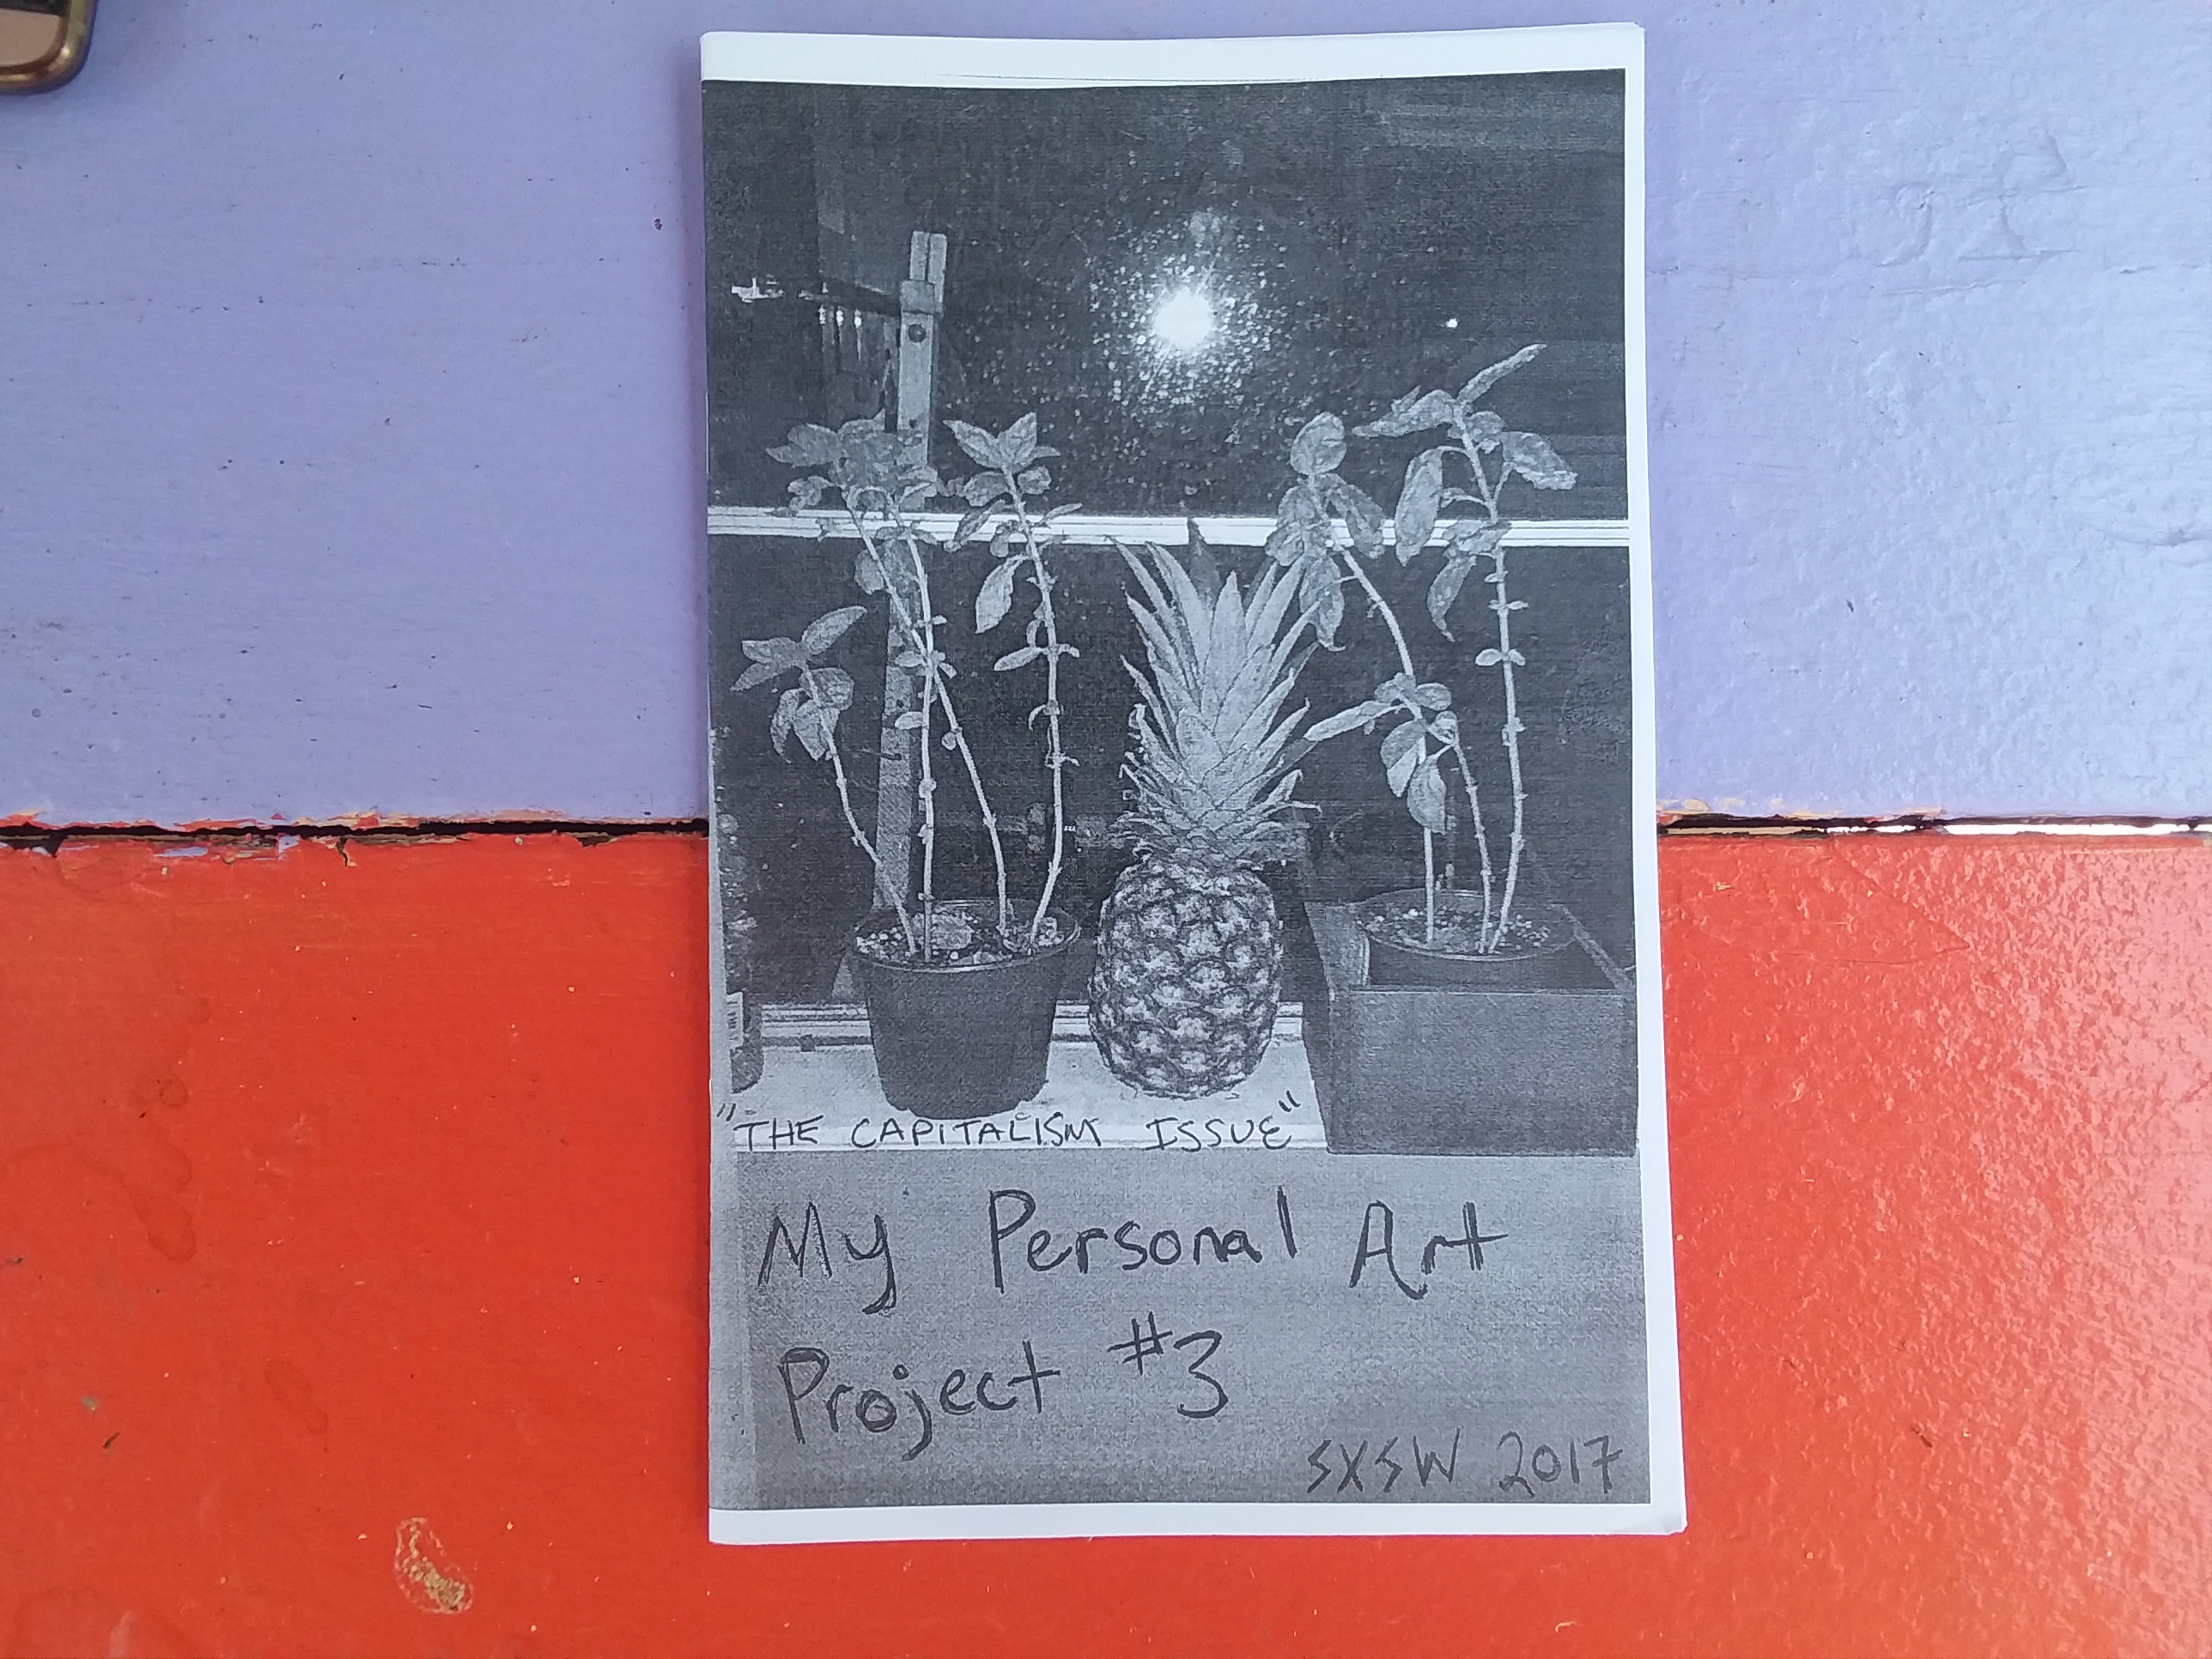 "THE CAPITALISM ISSUE"
My Personal Art
Project #3
SXSW 2017